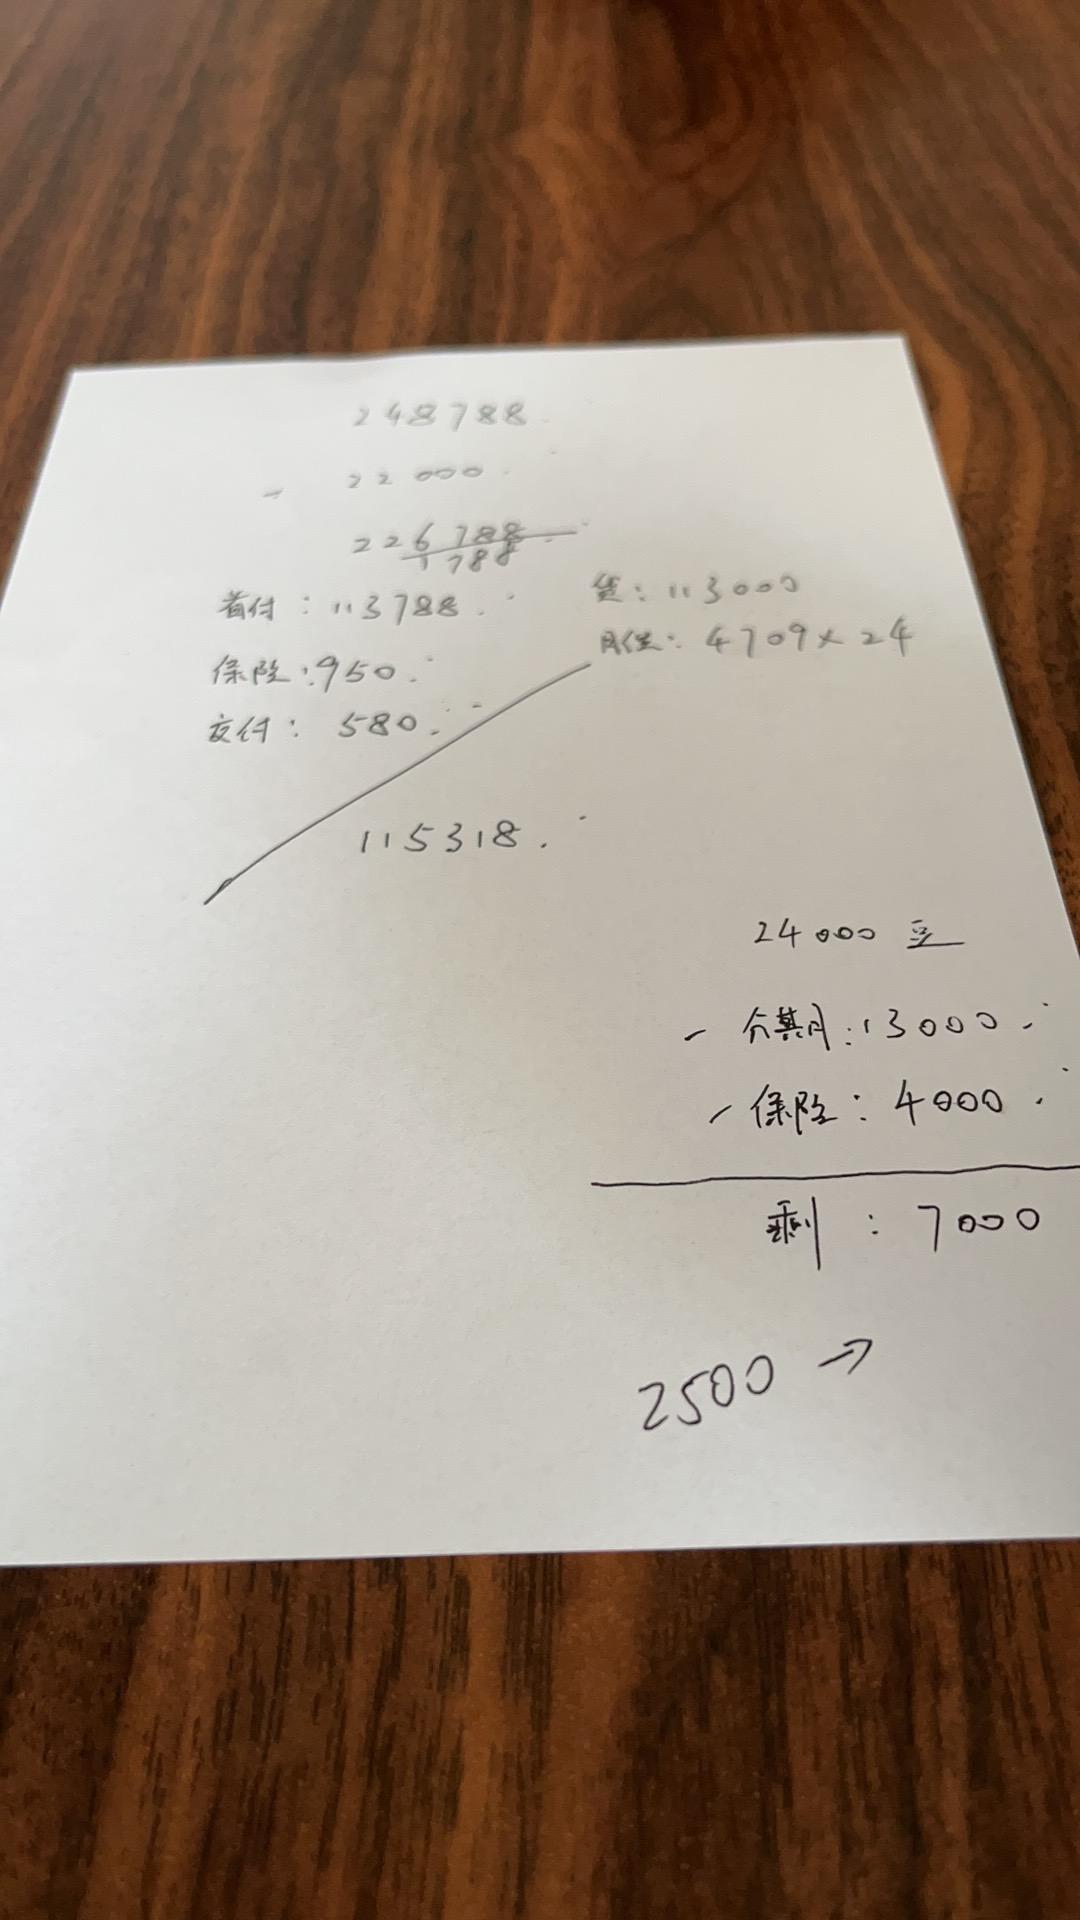 248788.
- 22000.
226788.
1788
首付: 113788. 贷: 113000
保险: 950. 月供: 4709×24
交付: 580.
115318.
24000 豆
- 分期月: 13000.
- 保险: 4000.
剩: 7000
2500 →